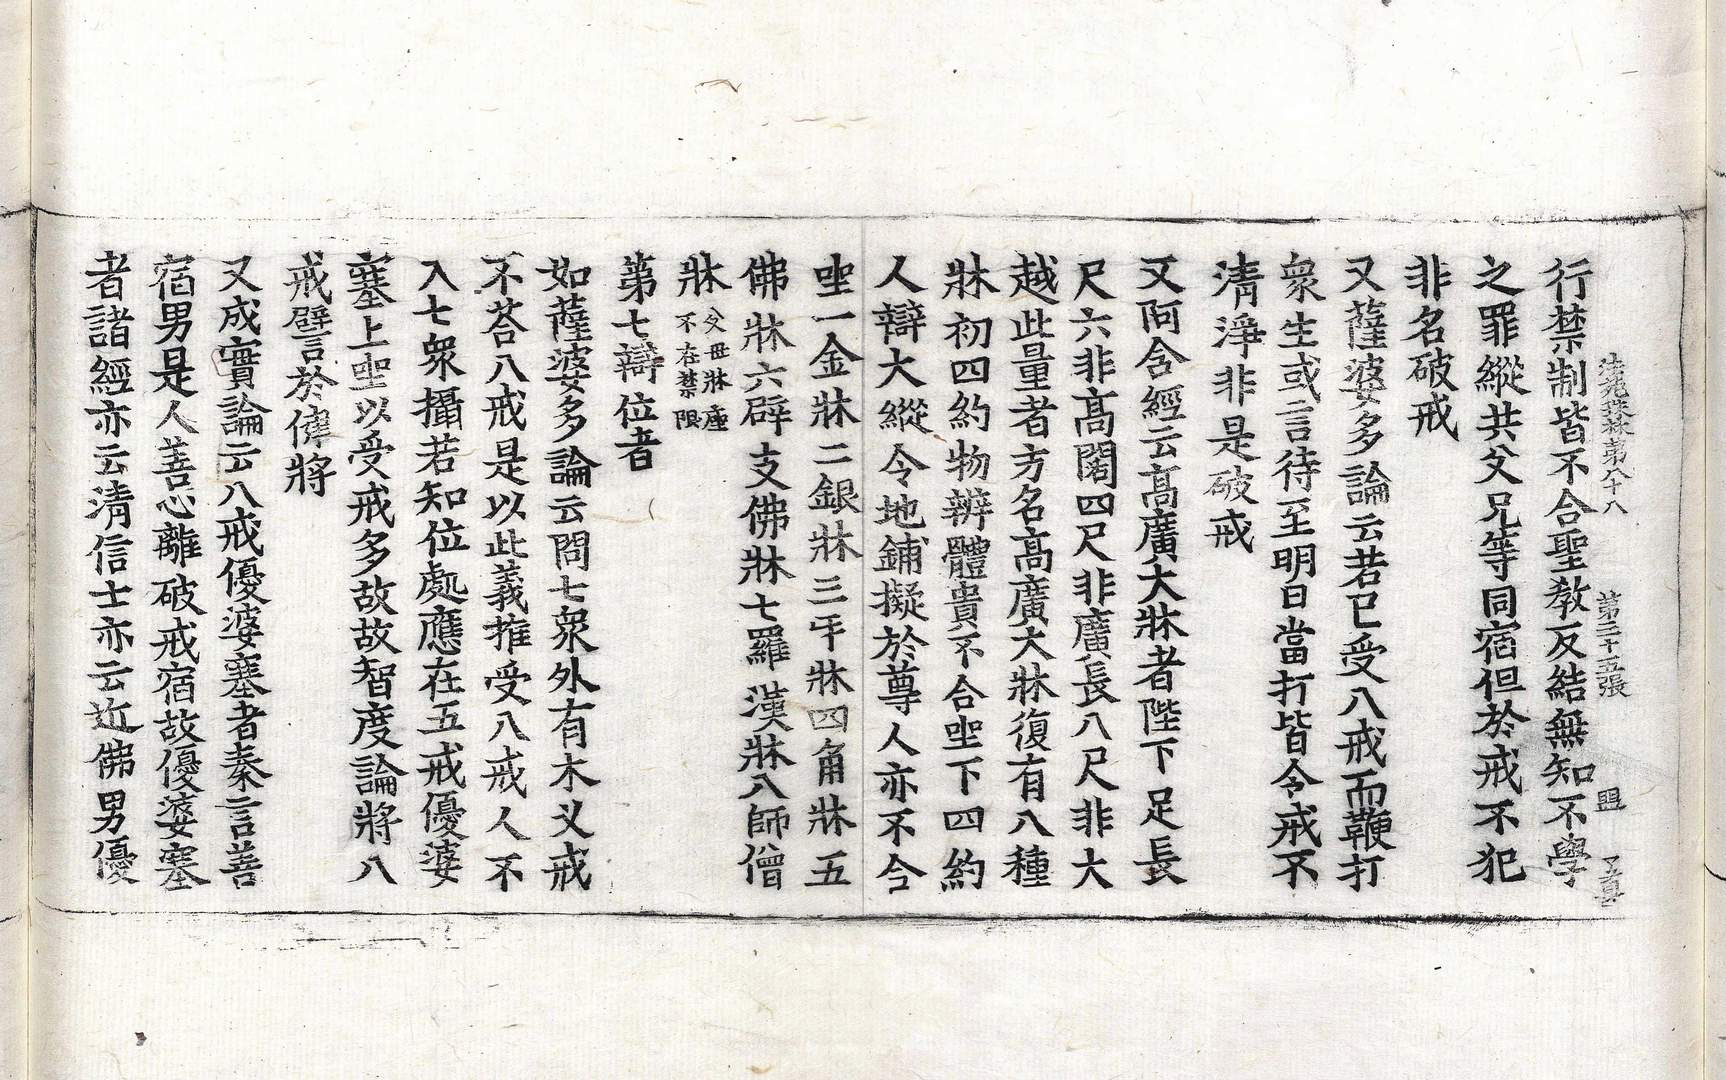 法苑珠林第八十八　第二十五張　盟
行禁制皆不合聖教反結無知不學
之罪縱共父兄等同宿但於戒不犯
非名破戒
又薩婆多論云若已受八戒而鞭打
衆生或言待至明日當打皆令戒不
清淨非是破戒
又阿含經云高廣大牀者陛下足長
尺六非高閣四尺非廣長八尺非大
越此量者方名高廣大牀復有八種
牀初四約物辨體貴不合坐下四約
人辯大縱令地鋪擬於尊人亦不合
坐一金牀二銀牀三牙牀四角牀五
佛牀六辟支佛牀七羅漢牀八師僧
牀父母牀座不在禁限
第七辯位者
如薩婆多論云問七衆外有木叉戒
不荅八戒是以此義推受八戒人不
入七衆攝若知位處應在五戒優婆
塞上坐以受戒多故故智度論將八
戒譬言於健將
又成實論云八戒優婆塞者秦言善
宿男是人善心離破戒宿故優婆塞
者諸經亦云清信士亦云近佛男優